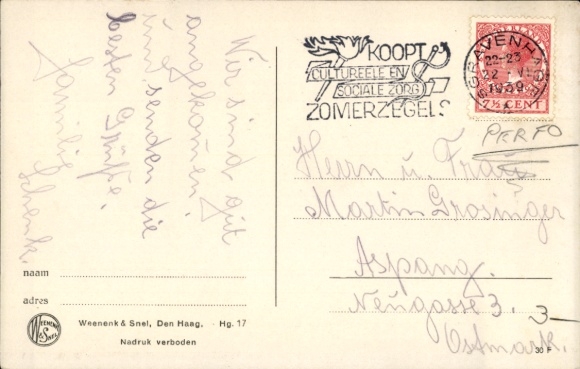 Wir sind gut
angekommen
und senden die
besten Grüße.
Familie
Schenk.
naam
adres
WEENENK & SNEL
Weenenk & Snel, Den Haag. - Hg. 17
Nadruk verboden
KOOPT
CULTUREELE EN
SOCIALE ZORG
ZOMERZEGELS
'S GRAVENHAGE
22-23
22 VI
1939
NEDERLAND
7½ CENT
PERFO
Herrn u. Frau
Martin Grosinger
Aspang.
Neugasse 3.
3-
Ostmark.
30 F